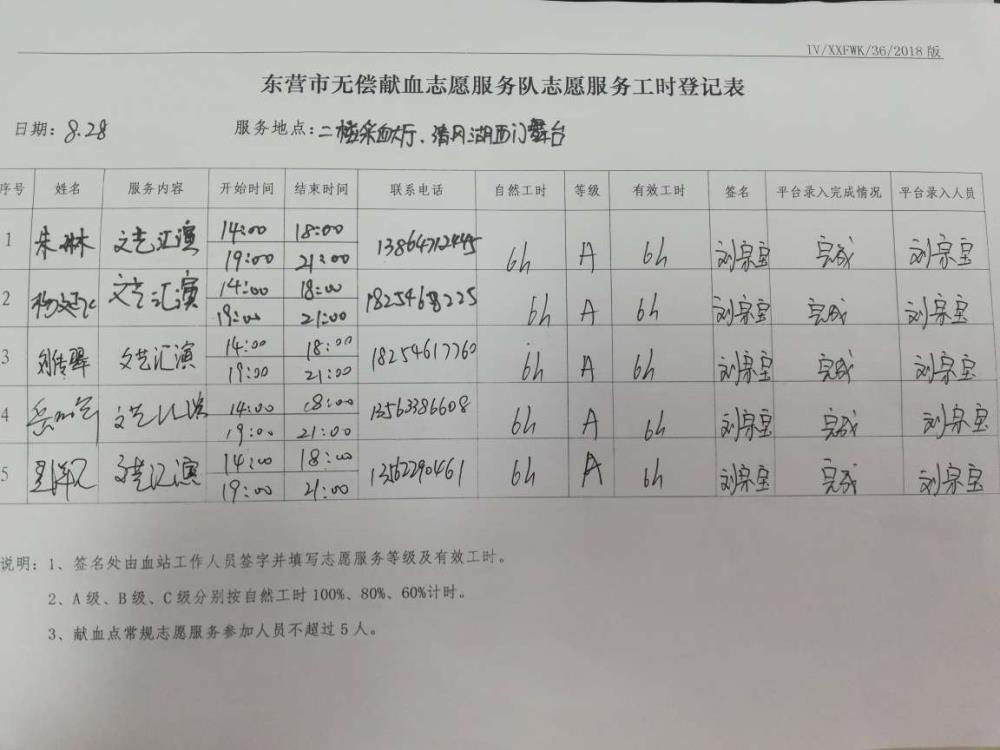 IV/XXFWK/36/2018版
东营市无偿献血志愿服务队志愿服务工时登记表
日期：8.28 服务地点：二楼采血大厅、清风湖西门舞台
序号 姓名 服务内容 开始时间 结束时间 联系电话 自然工时 等级 有效工时 签名 平台录入完成情况 平台录入人员
1 朱琳 文艺汇演 14:00 18:00 13864712445 6h A 6h 刘宗宝 完成 刘宗宝
19:00 21:00
2 文艺汇演 14:00 18:00 6h A 6h 刘宗宝 完成 刘宗宝
19:00 21:00
3 文艺汇演 14:00 18:00 18254617760 6h A 6h 刘宗宝 完成 刘宗宝
19:00 21:00
4 文艺汇演 14:00 18:00 13563386608 6h A 6h 刘宗宝 完成 刘宗宝
19:00 21:00
5 文艺汇演 14:00 18:00 13562290461 6h A 6h 刘宗宝 完成 刘宗宝
19:00 21:00
说明：1、签名处由血站工作人员签字并填写志愿服务等级及有效工时。
2、A级、B级、C级分别按自然工时100%、80%、60%计时。
3、献血点常规志愿服务参加人员不超过5人。